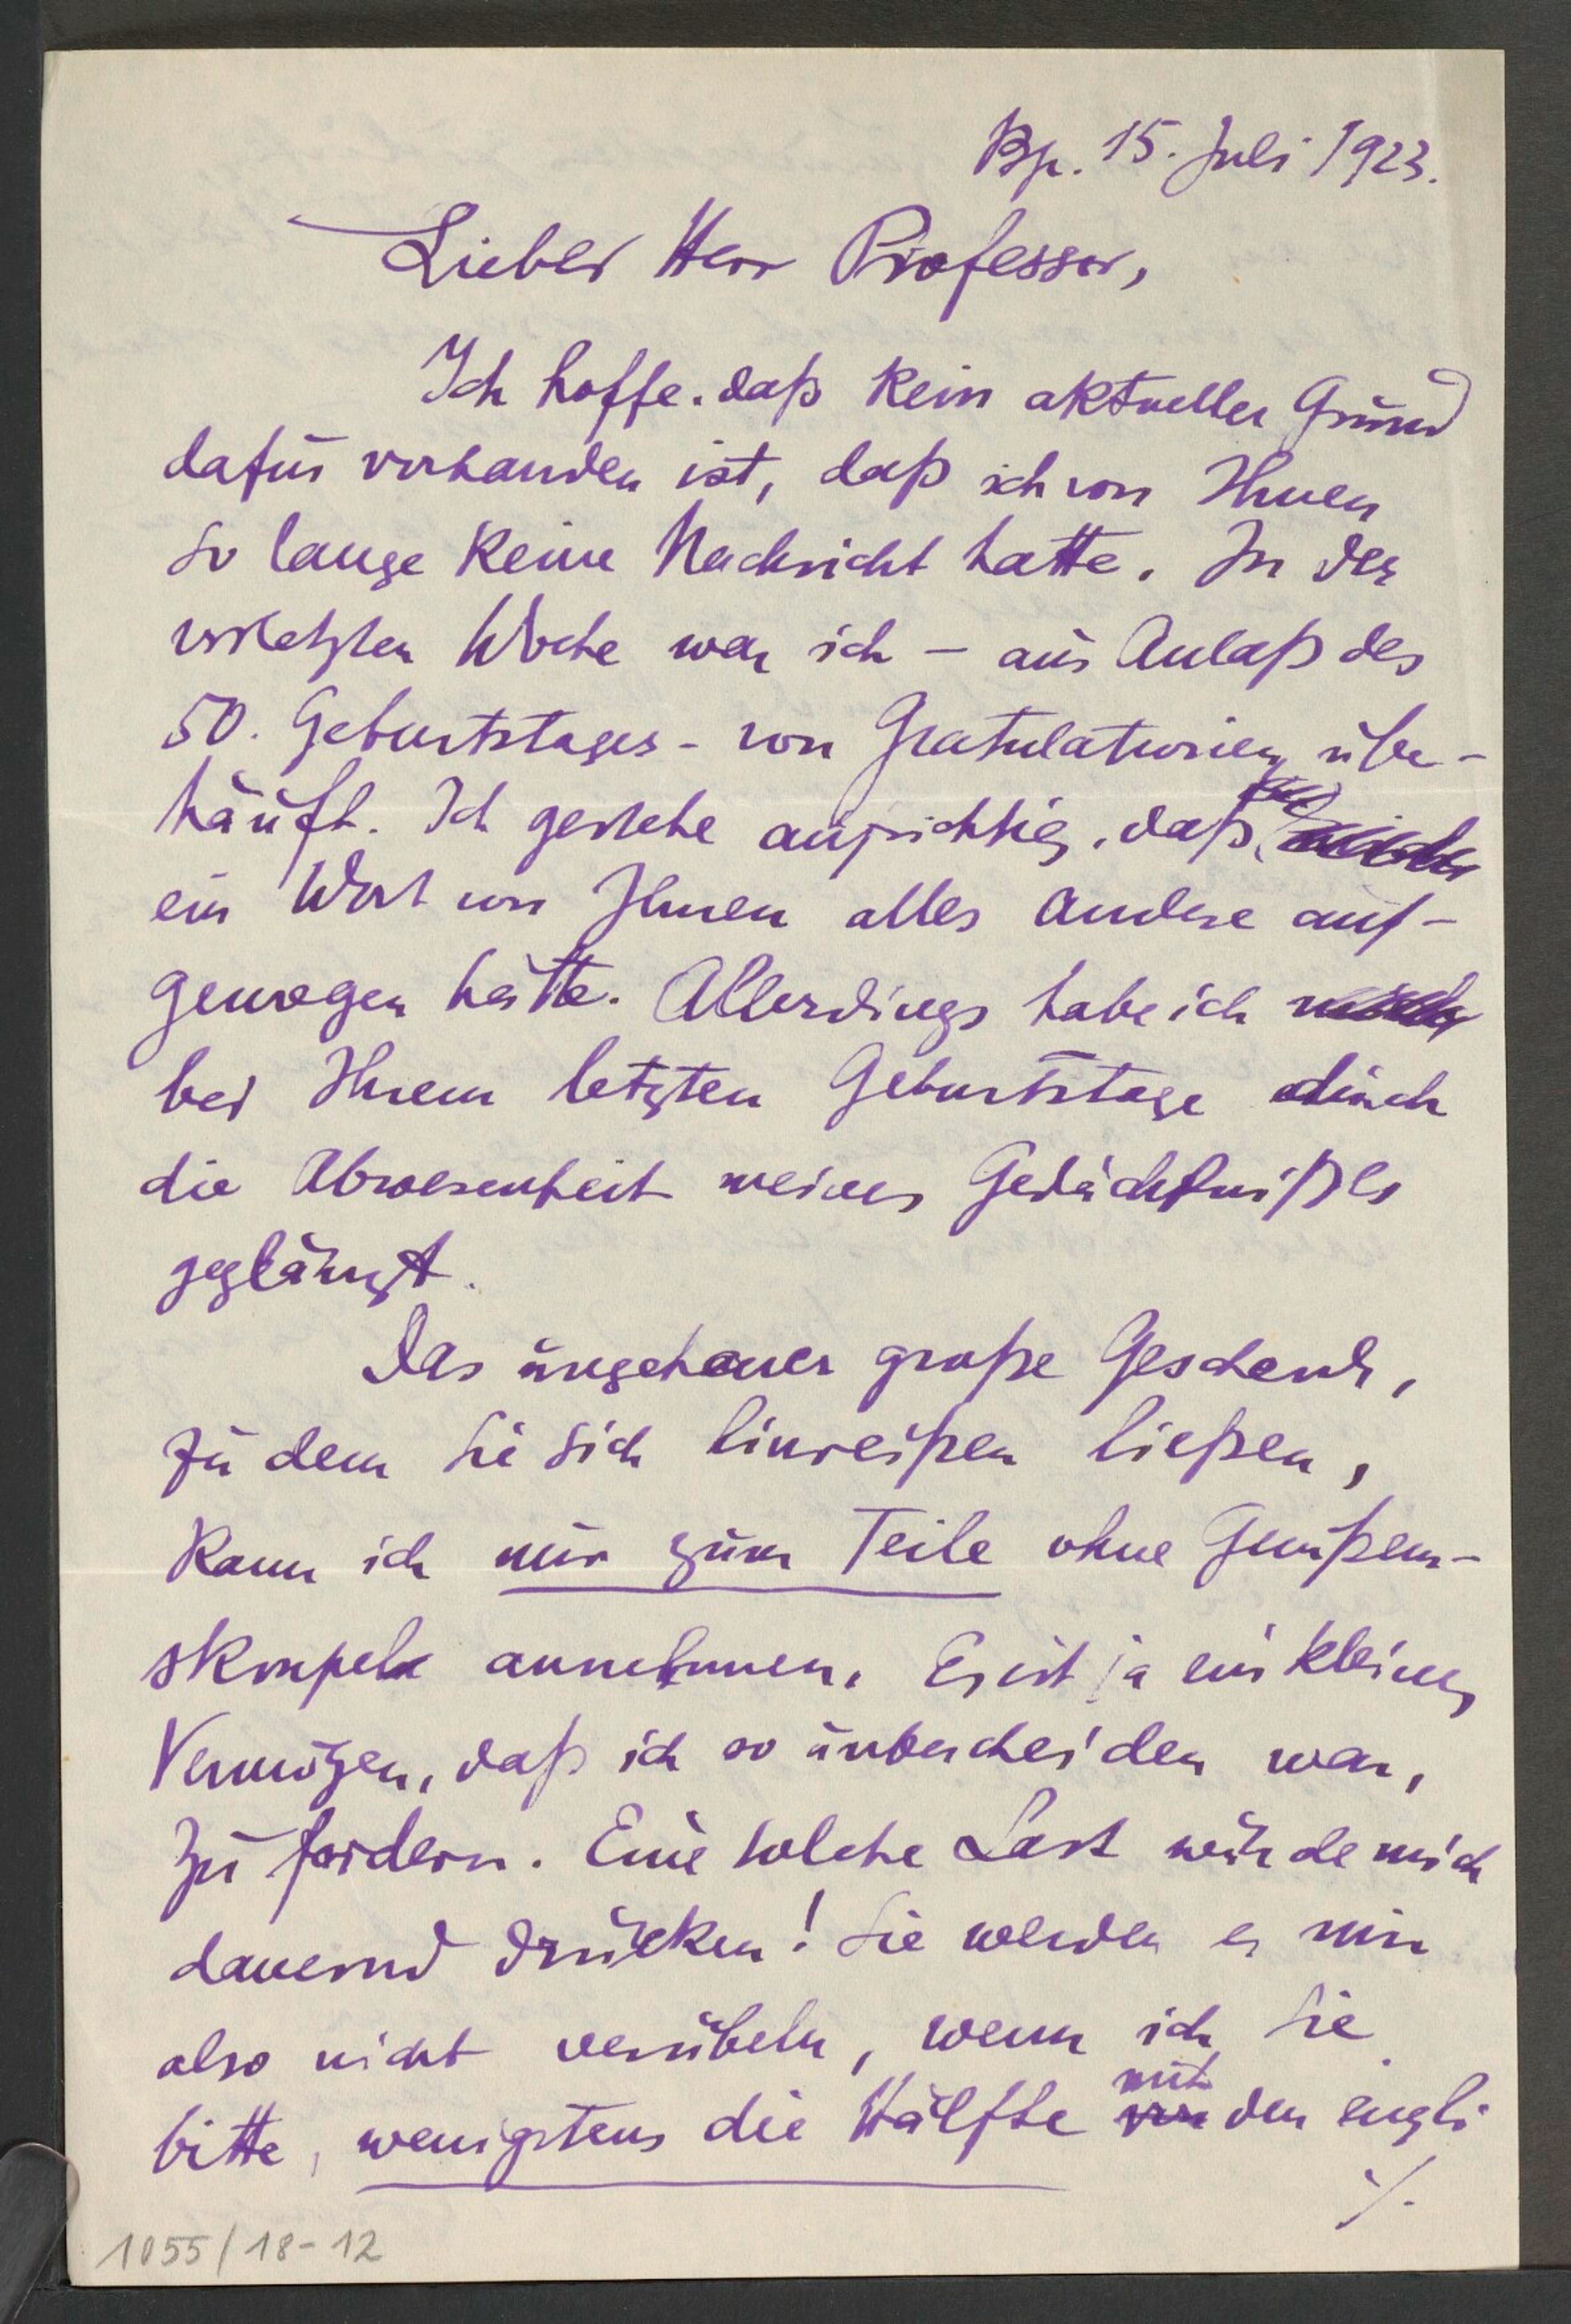 Bp. 15. Juli 1923.
Lieber Herr Professor,
Ich hoffe, daß kein aktueller Grund
dafür vorhanden ist, daß ich von Ihnen
so lange keine Nachricht hatte. In der
vorletzten Woche war ich – aus Anlaß des
50. Geburtstages – von Gratulationen über-
häuft. Ich gestehe aufrichtig, daß
ein Wort von Ihnen alles Andere auf-
gewogen hätte. Allerdings habe ich
bei Ihrem letzten Geburtstage durch
die Abwesenheit meines Gedächtnißes
geglänzt.
Das ungeheuer große Geschenk,
zu dem Sie sich hinreißen ließen,
kann ich nur zum Teile ohne Gewißens-
skrupel annehmen. Es ist ja ein kleines
Vermögen, daß ich so unbescheiden war,
zu fordern. Eine solche Last würde mich
dauernd drücken! Sie werden es mir
also nicht verübeln, wenn ich Sie
bitte, wenigstens die Hälfte mit den engli
./.
1055/18-12